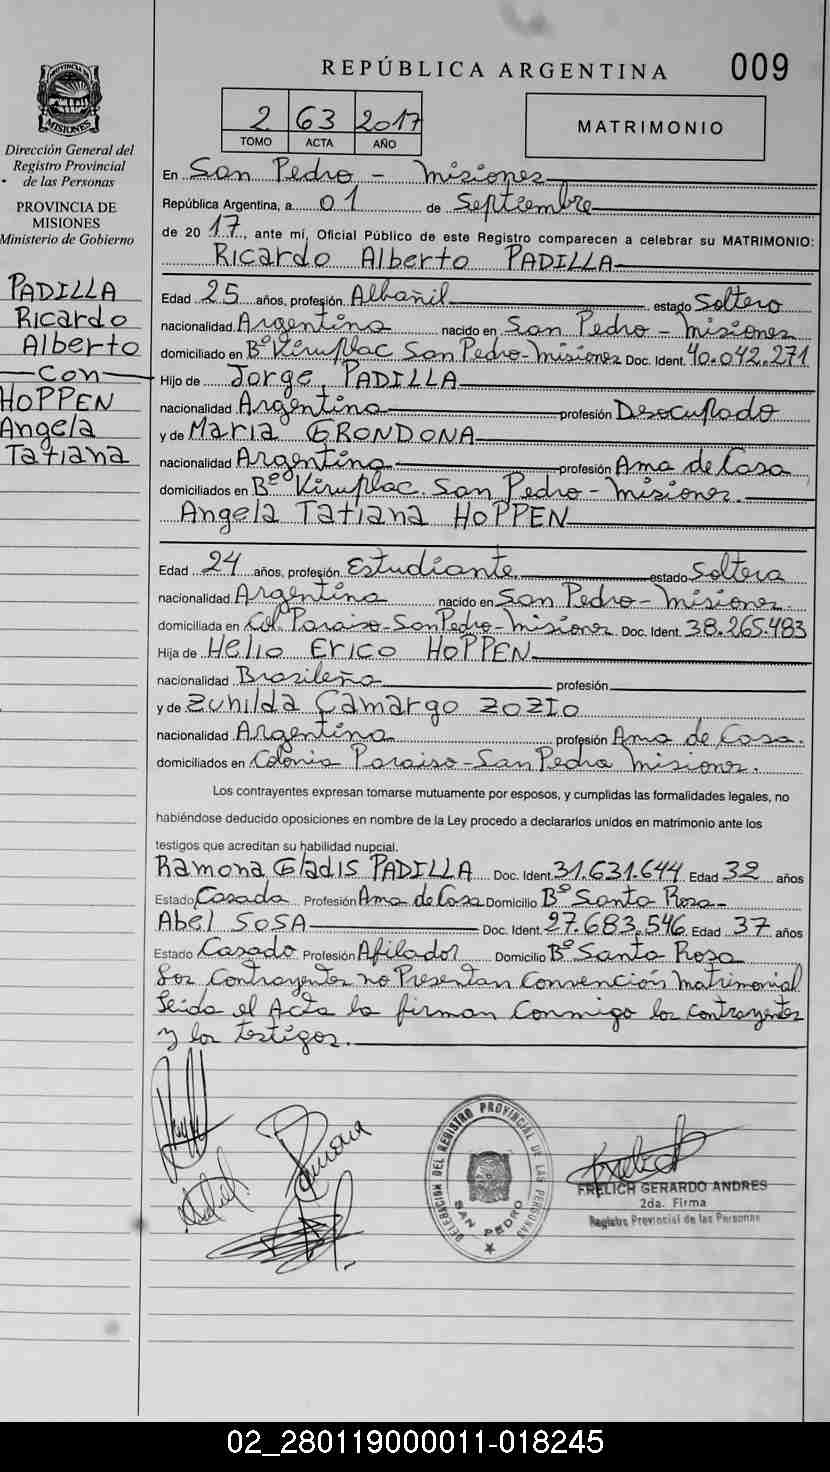 REPÚBLICA ARGENTINA 009
PROVINCIA DE MISIONES
Dirección General del
Registro Provincial
de las Personas
PROVINCIA DE
MISIONES
Ministerio de Gobierno
2 63 2017
TOMO ACTA AÑO
MATRIMONIO
En San Pedro - Misiones
República Argentina, a 01 de Septiembre
de 2017, ante mí, Oficial Público de este Registro comparecen a celebrar su MATRIMONIO:
Ricardo Alberto PADILLA
PADILLA
Ricardo
Alberto
Con
HOPPEN
Angela
Tatiana
Edad 25 años, profesión Albañil estado Soltero
nacionalidad Argentina nacido en San Pedro - Misiones
domiciliado en Bº Kiruplac San Pedro - Misiones Doc. Ident. 40.042.271
Hijo de Jorge PADILLA
nacionalidad Argentina profesión Desocupado
y de Maria GRONDONA
nacionalidad Argentina profesión Ama de Casa
domiciliados en Bº Kiruplac. San Pedro - Misiones.
Angela Tatiana HOPPEN
Edad 24 años, profesión Estudiante estado Soltera
nacionalidad Argentina nacido en San Pedro - Misiones.
domiciliada en Col. Paraiso - San Pedro - Misiones Doc. Ident. 38.265.483
Hija de Helio Erico HOPPEN
nacionalidad Brasileña profesión
y de Zunilda Camargo ZOZIO
nacionalidad Argentina profesión Ama de Casa.
domiciliados en Colonia Paraiso - San Pedro Misiones.
Los contrayentes expresan tomarse mutuamente por esposos, y cumplidas las formalidades legales, no
habiéndose deducido oposiciones en nombre de la Ley procedo a declararlos unidos en matrimonio ante los
testigos que acreditan su habilidad nupcial.
Ramona Gladis PADILLA Doc. Ident. 31.631.644 Edad 32 años
Estado Casada Profesión Ama de Casa Domicilio Bº Santa Rosa -
Abel SOSA Doc. Ident. 27.683.546 Edad 37 años
Estado Casado Profesión Afilador Domicilio Bº Santa Rosa
Los Contrayentes no Presentan Convención Matrimonial
Leída el Acta la firman Conmigo los Contrayentes
y los testigos.
DELEGACION DEL REGISTRO PROVINCIAL DE LAS PERSONAS
SAN PEDRO
FRELICH GERARDO ANDRES
2da. Firma
Registro Provincial de las Personas
02_280119000011-018245